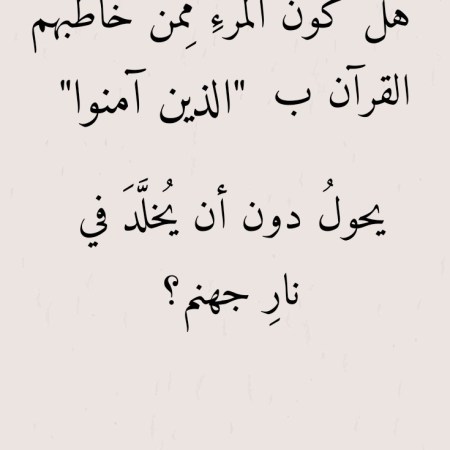 هل كون المرءِ مِمن خاطبهم
القرآن ب "الذين آمنوا"
يحولُ دون أن يُخلَّدَ في
نارِ جهنم؟